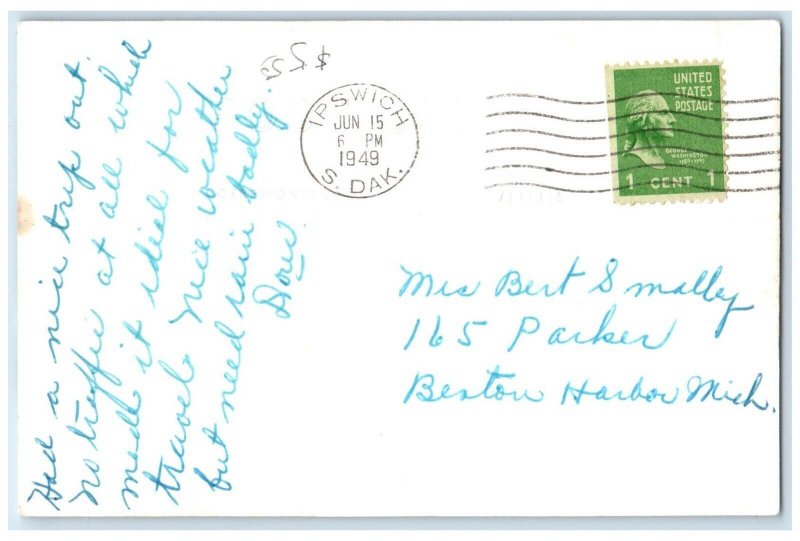 Had a nice trip out.
no traffic at all which
made it ideal for
travel. Nice weather
but need rain badly.
$5.5
IPSWICH
JUN 15
6 PM
1949
S. DAK.
UNITED
STATES
POSTAGE
GEORGE
WASHINGTON
1 CENT 1
Mrs Bert Smalley
165 Parker
Benton Harbor Mich.